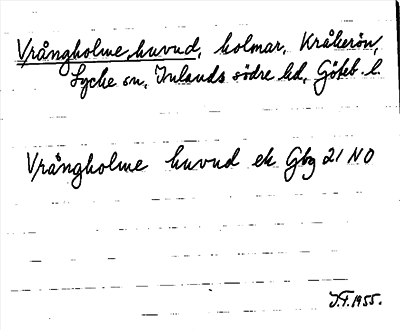 Vrångholme huvud, holmar, Kråkerön,
Lycke sn, Inlands södre hd, Göteb. l.
Vrångholme huvud ek Gbg 21 NO
J.F. 1955.